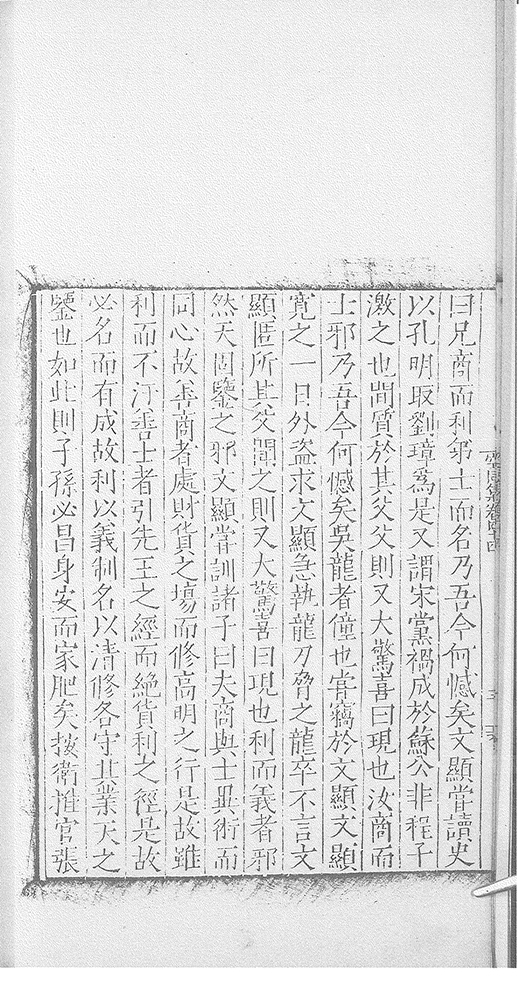 曰兄商而利弟士而名乃吾今何憾矣文顯嘗讀史
以孔明取劉璋為是又謂宋黨禍成於蘇公非程子
激之也間質於其父父則又大驚喜曰現也汝商而
士邪乃吾今何憾矣吳龍者僮也嘗竊於文顯文顯
寬之一日外盜求文顯急執龍刀脅之龍卒不言文
顯匿所其父聞之則又大驚喜曰現也利而義者邪
然天固鑒之邪文顯嘗訓諸子曰夫商與士異術而
同心故善商者處財貨之場而修高明之行是故雖
利而不汙善士者引先王之經而絕貨利之徑是故
必名而有成故利以義制名以清修各守其業天之
鑒也如此則子孫必昌身安而家肥矣按衛推官張